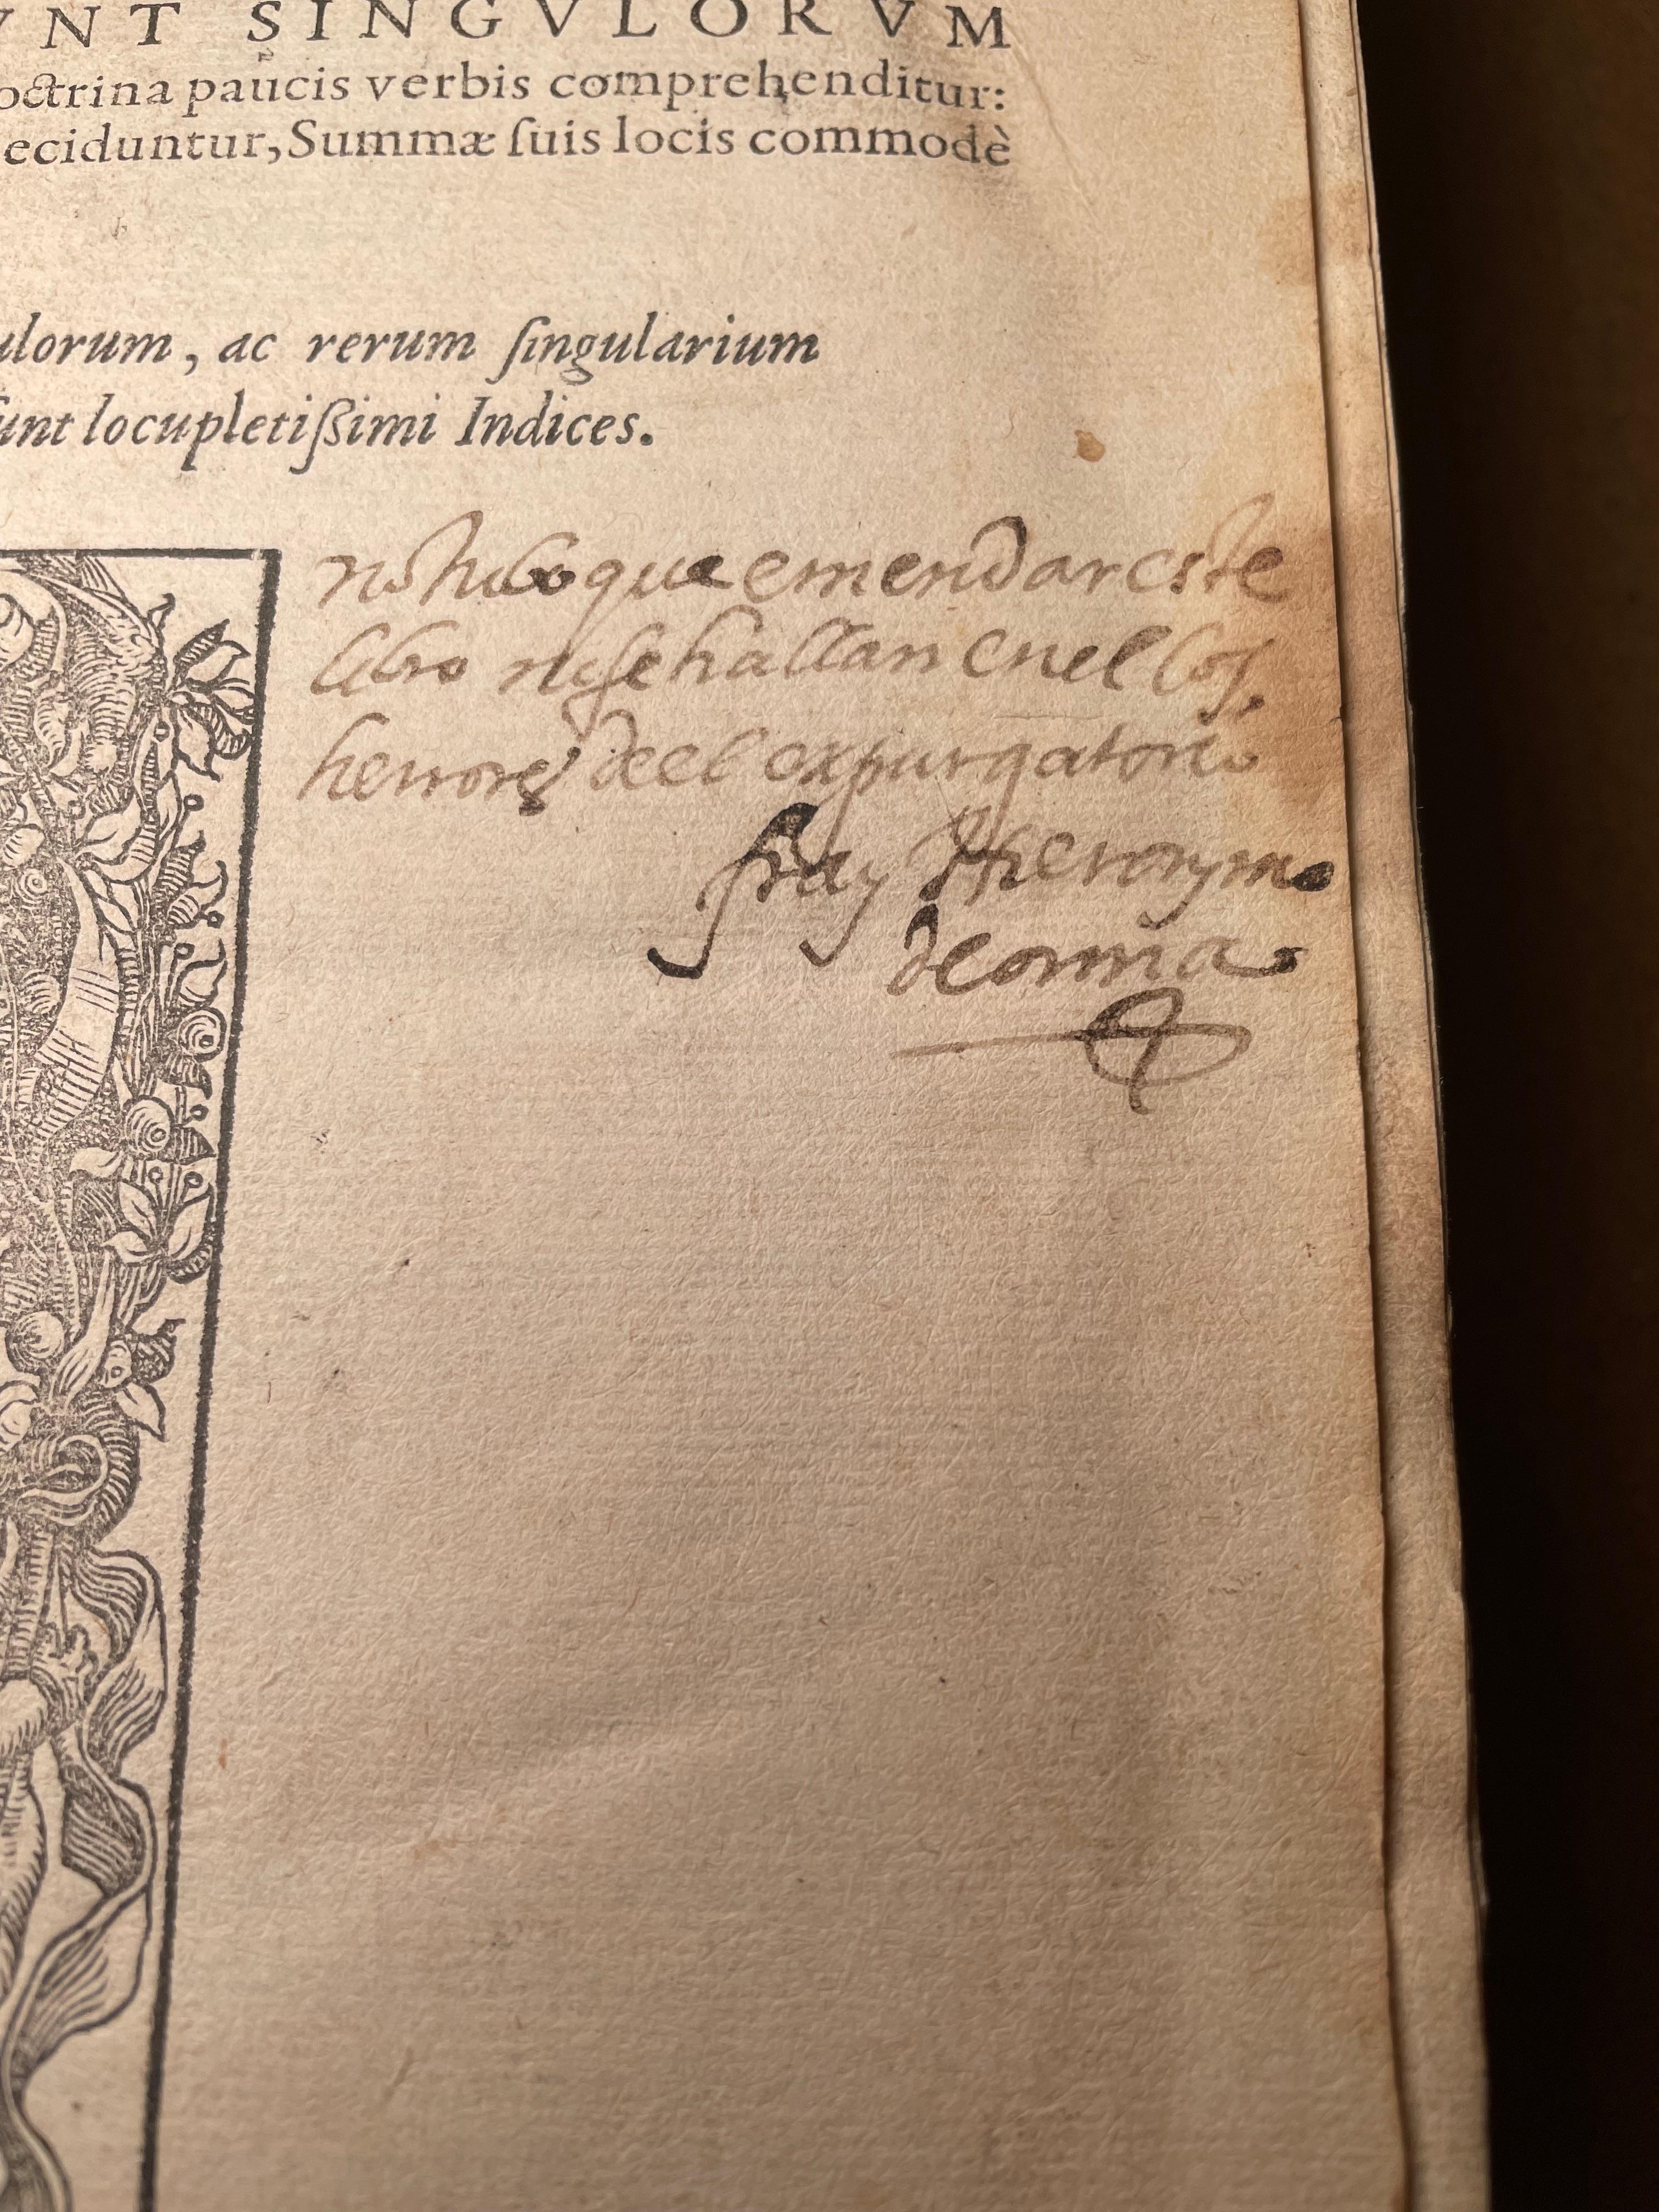 VNT SINGVLORVM
octrina paucis verbis comprehenditur:
eciduntur, Summæ ſuis locis commodè
ulorum, ac rerum ſingularium
ſunt locupletiſsimi Indices.
no hubo que emendar este
libro ni se hallan en el los
herrores de el expurgatorio
fray Hieronymo
de